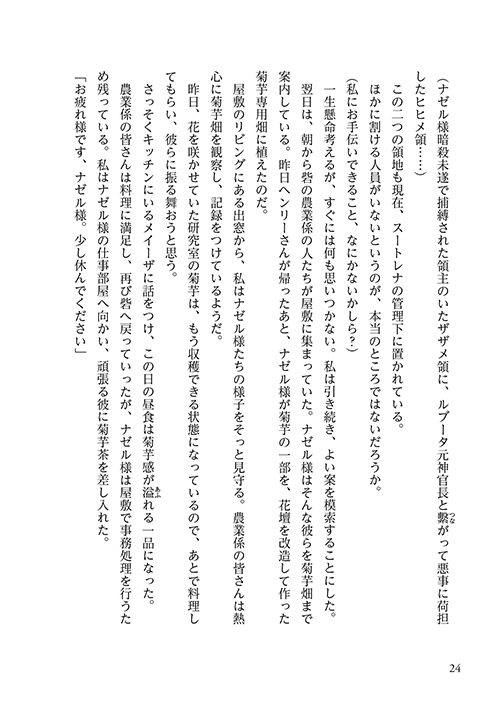 （ナゼル様暗殺未遂で捕縛された領主のいたザザメ領に、ルブータ元神官長と繋がって悪事に荷担
したヒヒメ領……）
この二つの領地も現在、スートレナの管理下に置かれている。
ほかに割ける人員がいないというのが、本当のところではないだろうか。
（私にお手伝いできること、なにかないかしら？）
一生懸命考えるが、すぐには何も思いつかない。私は引き続き、よい案を模索することにした。
翌日は、朝から砦の農業係の人たちが屋敷に集まっていた。ナゼル様はそんな彼らを菊芋畑まで
案内している。昨日ヘンリーさんが帰ったあと、ナゼル様が菊芋の一部を、花壇を改造して作った
菊芋専用畑に植えたのだ。
屋敷のリビングにある出窓から、私はナゼル様たちの様子をそっと見守る。農業係の皆さんは熱
心に菊芋畑を観察し、記録をつけているようだ。
昨日、花を咲かせていた研究室の菊芋は、もう収穫できる状態になっているので、あとで料理し
てもらい、彼らに振る舞おうと思う。
さっそくキッチンにいるメイーザに話をつけ、この日の昼食は菊芋感が溢れる一品になった。
農業係の皆さんは料理に満足し、再び砦へ戻っていったが、ナゼル様は屋敷で事務処理を行うた
め残っている。私はナゼル様の仕事部屋へ向かい、頑張る彼に菊芋茶を差し入れた。
「お疲れ様です、ナゼル様。少し休んでください」
24